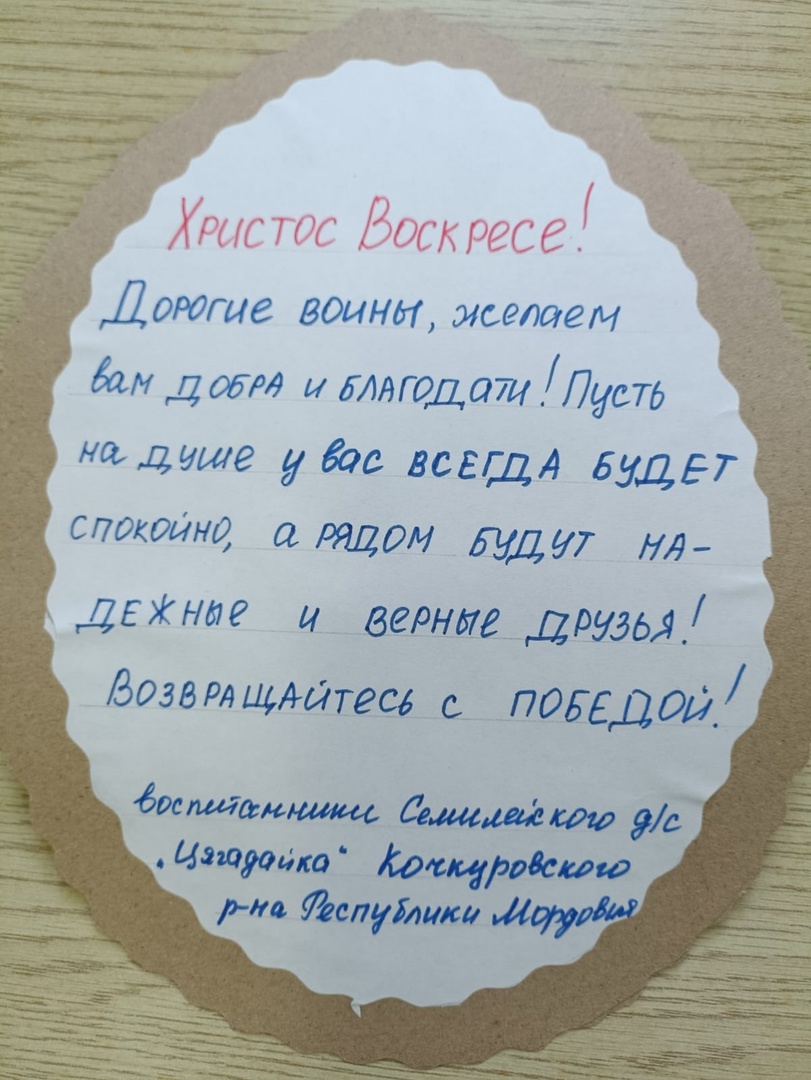 Христос Воскресе!
Дорогие воины, желаем
вам добра и благодати! Пусть
на душе у вас всегда будет
спокойно, а рядом будут на-
дежные и верные друзья!
Возвращайтесь с победой!
воспитанники Семилейского д/с
"Цягадайка" Кочкуровского
р-на Республики Мордовия